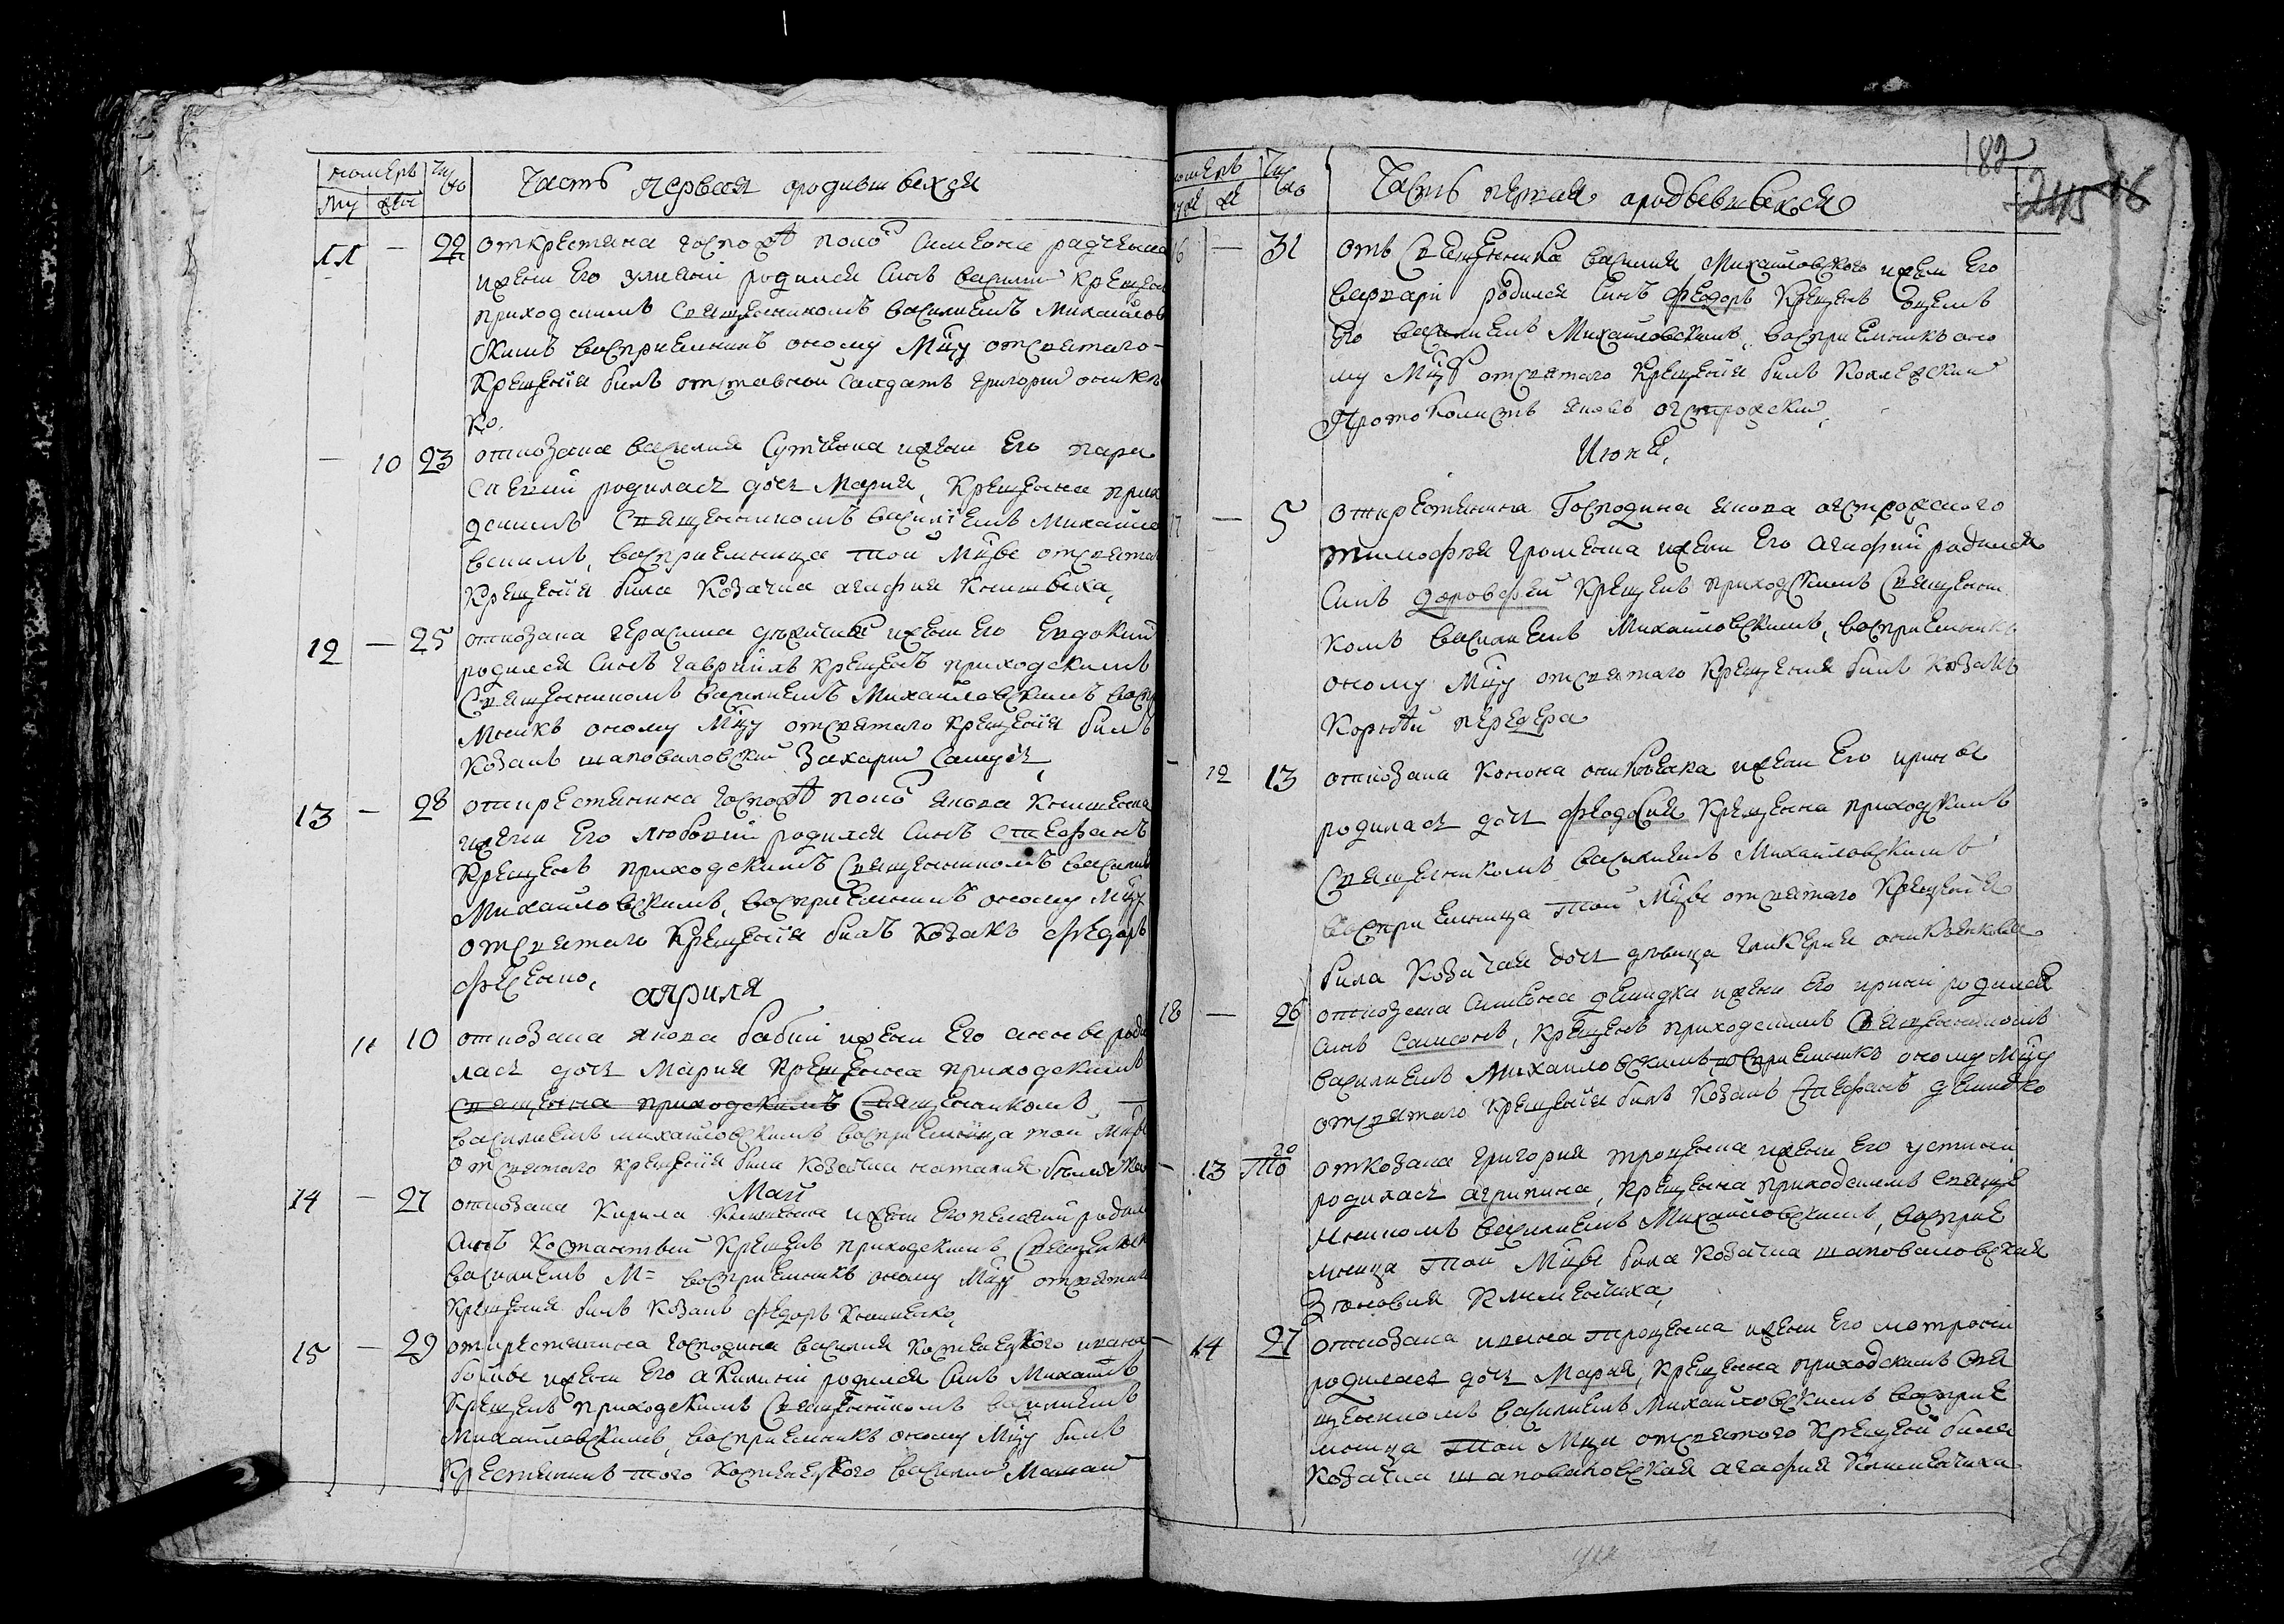 номеръ число Часть первая о родившыхся
му же
11 — 22 от крестянина господ. полк. Симеона Радченка
и жени его Улияни родился синъ Василий крещен
приходскимъ священникомъ Василиемъ Михайлов
скимъ восприемникъ оному мцу от святаго
крещения билъ отставной салдатъ Григорий Оникее
ко.
— 10 23 от козака Василия Сутченка и жени его Пара
скевии родилась дочъ Мария, крещенна прихо
дскимъ священникомъ Василиемъ Михайло
вскимъ, восприемница той мцве от святаго
крещения била козачка Агафия
12 — 25 от козака Герасима и жени его Евдокии
родился синъ Гавриилъ крещенъ приходскимъ
священникомъ Василиемъ Михайловскимъ воспри
мникъ оному мцу от святаго крещения билъ
козакъ шаповаловский Захарий
13 — 28 от крестянина господ. полк. Якова
и жени его Любовии родился синъ Стефанъ
крещенъ приходскимъ священникомъ Василием
Михайловскимъ, восприемникъ оному мцу
от святаго крещения билъ козакъ Федоръ
Фесенко,
априля
11 10 от козака Якова Бабии и жени его Анни роди
лась дочъ Мария крещенна приходскимъ
священна приходскимъ священникомъ
Василиемъ Михайловскимъ восприемница той мцве
от святаго крещения била козачка Наталия
Май
14 — 27 от козака Кирила и жени его Пелагии родил
синъ Костантый крещенъ приходскимъ священик
Василиемъ М= восприемникъ оному мцу от святаго
крещения билъ козакъ Федоръ
15 — 29 от крестянина господина Василия Костенецкого Ивана
и жени его Акилини родился синъ Михаилъ
крещенъ приходскимъ священникомъ Василиемъ
Михайловскимъ, восприемникъ оному мцу билъ
крестянинъ того Костенецкого Василий Мамай
182
245 46
номеръ число Часть первая о родывшыхся
16 — 31 отъ священника Василия Михайловского и жени его
Варвари родился синъ Федоръ крещенъ отцемъ
его Василиемъ Михайловскимъ, восприемникъ оно
му мцу от святаго крещения билъ колежский
протоколистъ Яковъ Острожский
Июня,
17 — 5 от крестянина господина Якова Острожского
Тимофея Громенка и жени его Агафии родился
синъ Дорофей крещенъ приходскимъ священни
комъ Василиемъ Михайловскимъ, восприемникъ
оному мцу от святаго крещения билъ козакъ
Корней Передера
— 12 13 от козака Конона Оникеенка и жени его Ирини
родилась дочъ Феодосия крещенна приходскимъ
священникомъ Василиемъ Михайловскимъ
восприемница той мцве от святаго крещения
била козачая дочъ девица Гликерия Оникеенкова
18 — 26 от козака Симеона Демидка и жени его Ирини родился
синъ Самсонъ, крещенъ приходскимъ священникомъ
Василиемъ Михайловскимъ восприемникъ оному мцу
от святаго крещения билъ козакъ Стефанъ Демидко
— 13 то го от козака Григория Троценка и жени его Устини
родилась Агрипина, крещенна приходскимъ свяще
нникомъ Василиемъ Михайловскимъ, восприе
мница той мцве била козачка шаповаловская
Зиновия Клименчиха,
— 14 27 от козака Ивана Троценка и жени его Мотрони
родилась дочъ Мария, крещенна приходскимъ свя
щенникомъ Василиемъ Михайловскимъ восприе
мница той мци от святого крещения била
козачка шаповаловская Агафия